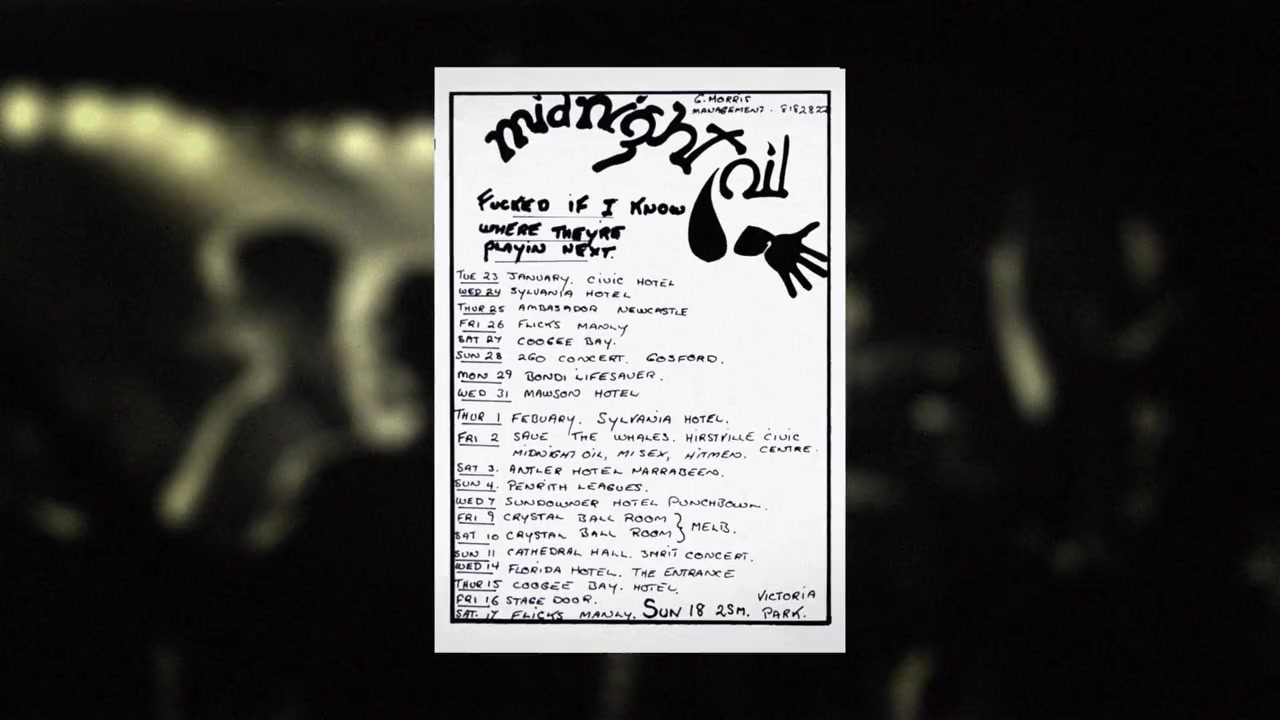 midnight oil
G. MORRIS
MANAGEMENT. 8182822
FUCKED IF I KNOW
WHERE THEYRE
PLAYIN NEXT.
TUE 23 JANUARY. CIVIC HOTEL
WED 24 SYLVANIA HOTEL
THUR 25 AMBASADOR NEWCASTLE
FRI 26 FLICKS MANLY
SAT 27 COOGEE BAY.
SUN 28 2GO CONCERT. GOSFORD.
MON 29 BONDI LIFESAVER.
WED 31 MAWSON HOTEL
THUR 1 FEBUARY. SYLVANIA HOTEL.
FRI 2 SAVE THE WHALES. HIRSTVILLE CIVIC
MIDNIGHT OIL, MISEX, HITMEN. CENTRE.
SAT 3. ANTLER HOTEL NARRABEEN.
SUN 4. PENRITH LEAGUES.
WED 7 SUNDOWNER HOTEL PUNCHBOWL.
FRI 9 CRYSTAL BALL ROOM
SAT 10 CRYSTAL BALL ROOM } MELB.
SUN 11 CATHEDRAL HALL. CONCERT.
WED 14 FLORIDA HOTEL. THE ENTRANCE
THUR 15 COOGEE BAY. HOTEL.
FRI 16 STAGE DOOR.
SAT. 17 FLICKS MANLY. SUN 18 2SM. VICTORIA
PARK.